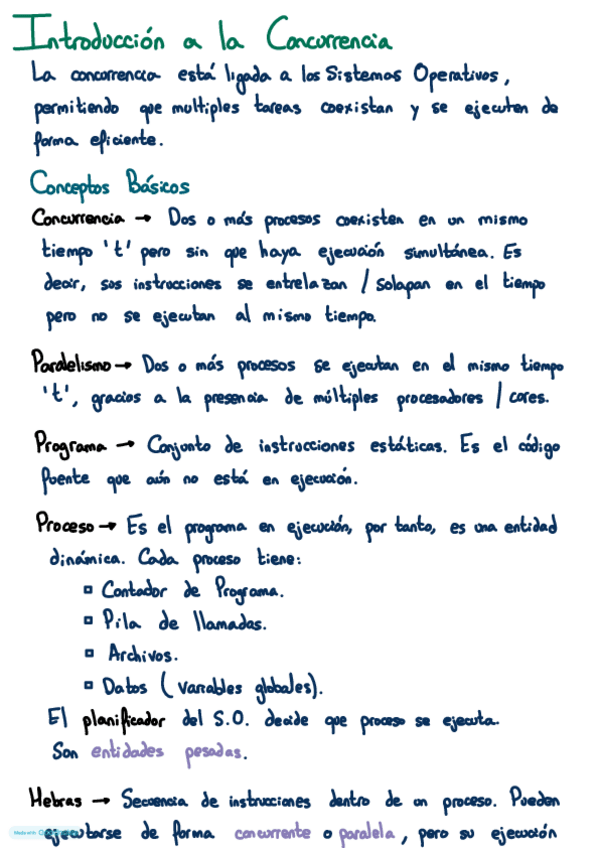 Introducción a la Concurrencia
La concurrencia está ligada a los Sistemas Operativos,
permitiendo que multiples tareas coexistan y se ejecuten de
forma eficiente.
Conceptos Básicos
Concurrencia → Dos o más procesos coexisten en un mismo
tiempo 't' pero sin que haya ejecución simultánea. Es
decir, sus instrucciones se entrelazan / solapan en el tiempo
pero no se ejecutan al mismo tiempo.
Paralelismo → Dos o más procesos se ejecutan en el mismo tiempo
't', gracias a la presencia de múltiples procesadores / cores.
Programa → Conjunto de instrucciones estáticas. Es el código
fuente que aún no está en ejecución.
Proceso → Es el programa en ejecución, por tanto, es una entidad
dinámica. Cada proceso tiene:
▫ Contador de Programa.
▫ Pila de llamadas.
▫ Archivos.
▫ Datos (variables globales).
El planificador del S.O. decide que proceso se ejecuta.
Son entidades pesadas.
Hebras → Secuencia de instrucciones dentro de un proceso. Pueden
ejecutarse de forma concurrente o paralela, pero su ejecución
Made with